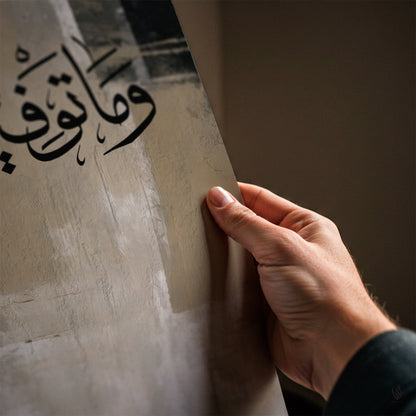 وما توفي